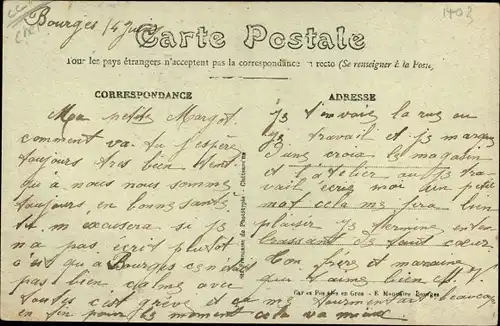 Bourges 14 Juin
1903
Carte Postale
Tous les pays étrangers n'acceptent pas la correspondance au recto (Se renseigner à la Poste)
CORRESPONDANCE
Ma petite Margot.
comment va tu j'espère
toujours tres bien
qu'à nous nous sommes
toujours en bonne santé
tu m'excusera si je
n'a pas écrit plutot
c'est que a Bourges
pas bien calme avec
toutes c'est grève et ça me
en fin pour le moment cela va mieux
ADRESSE
je t'envoie la rue ou
je travail et je marque
d'une croix le magasin
et l'atelier ou je travail
écris moi un petit
mot cela me fera bien
plaisir je termine en t'em
brassant de tout cœur
Ton frère et marraine
qui t'aime bien
tourmentait beaucoup